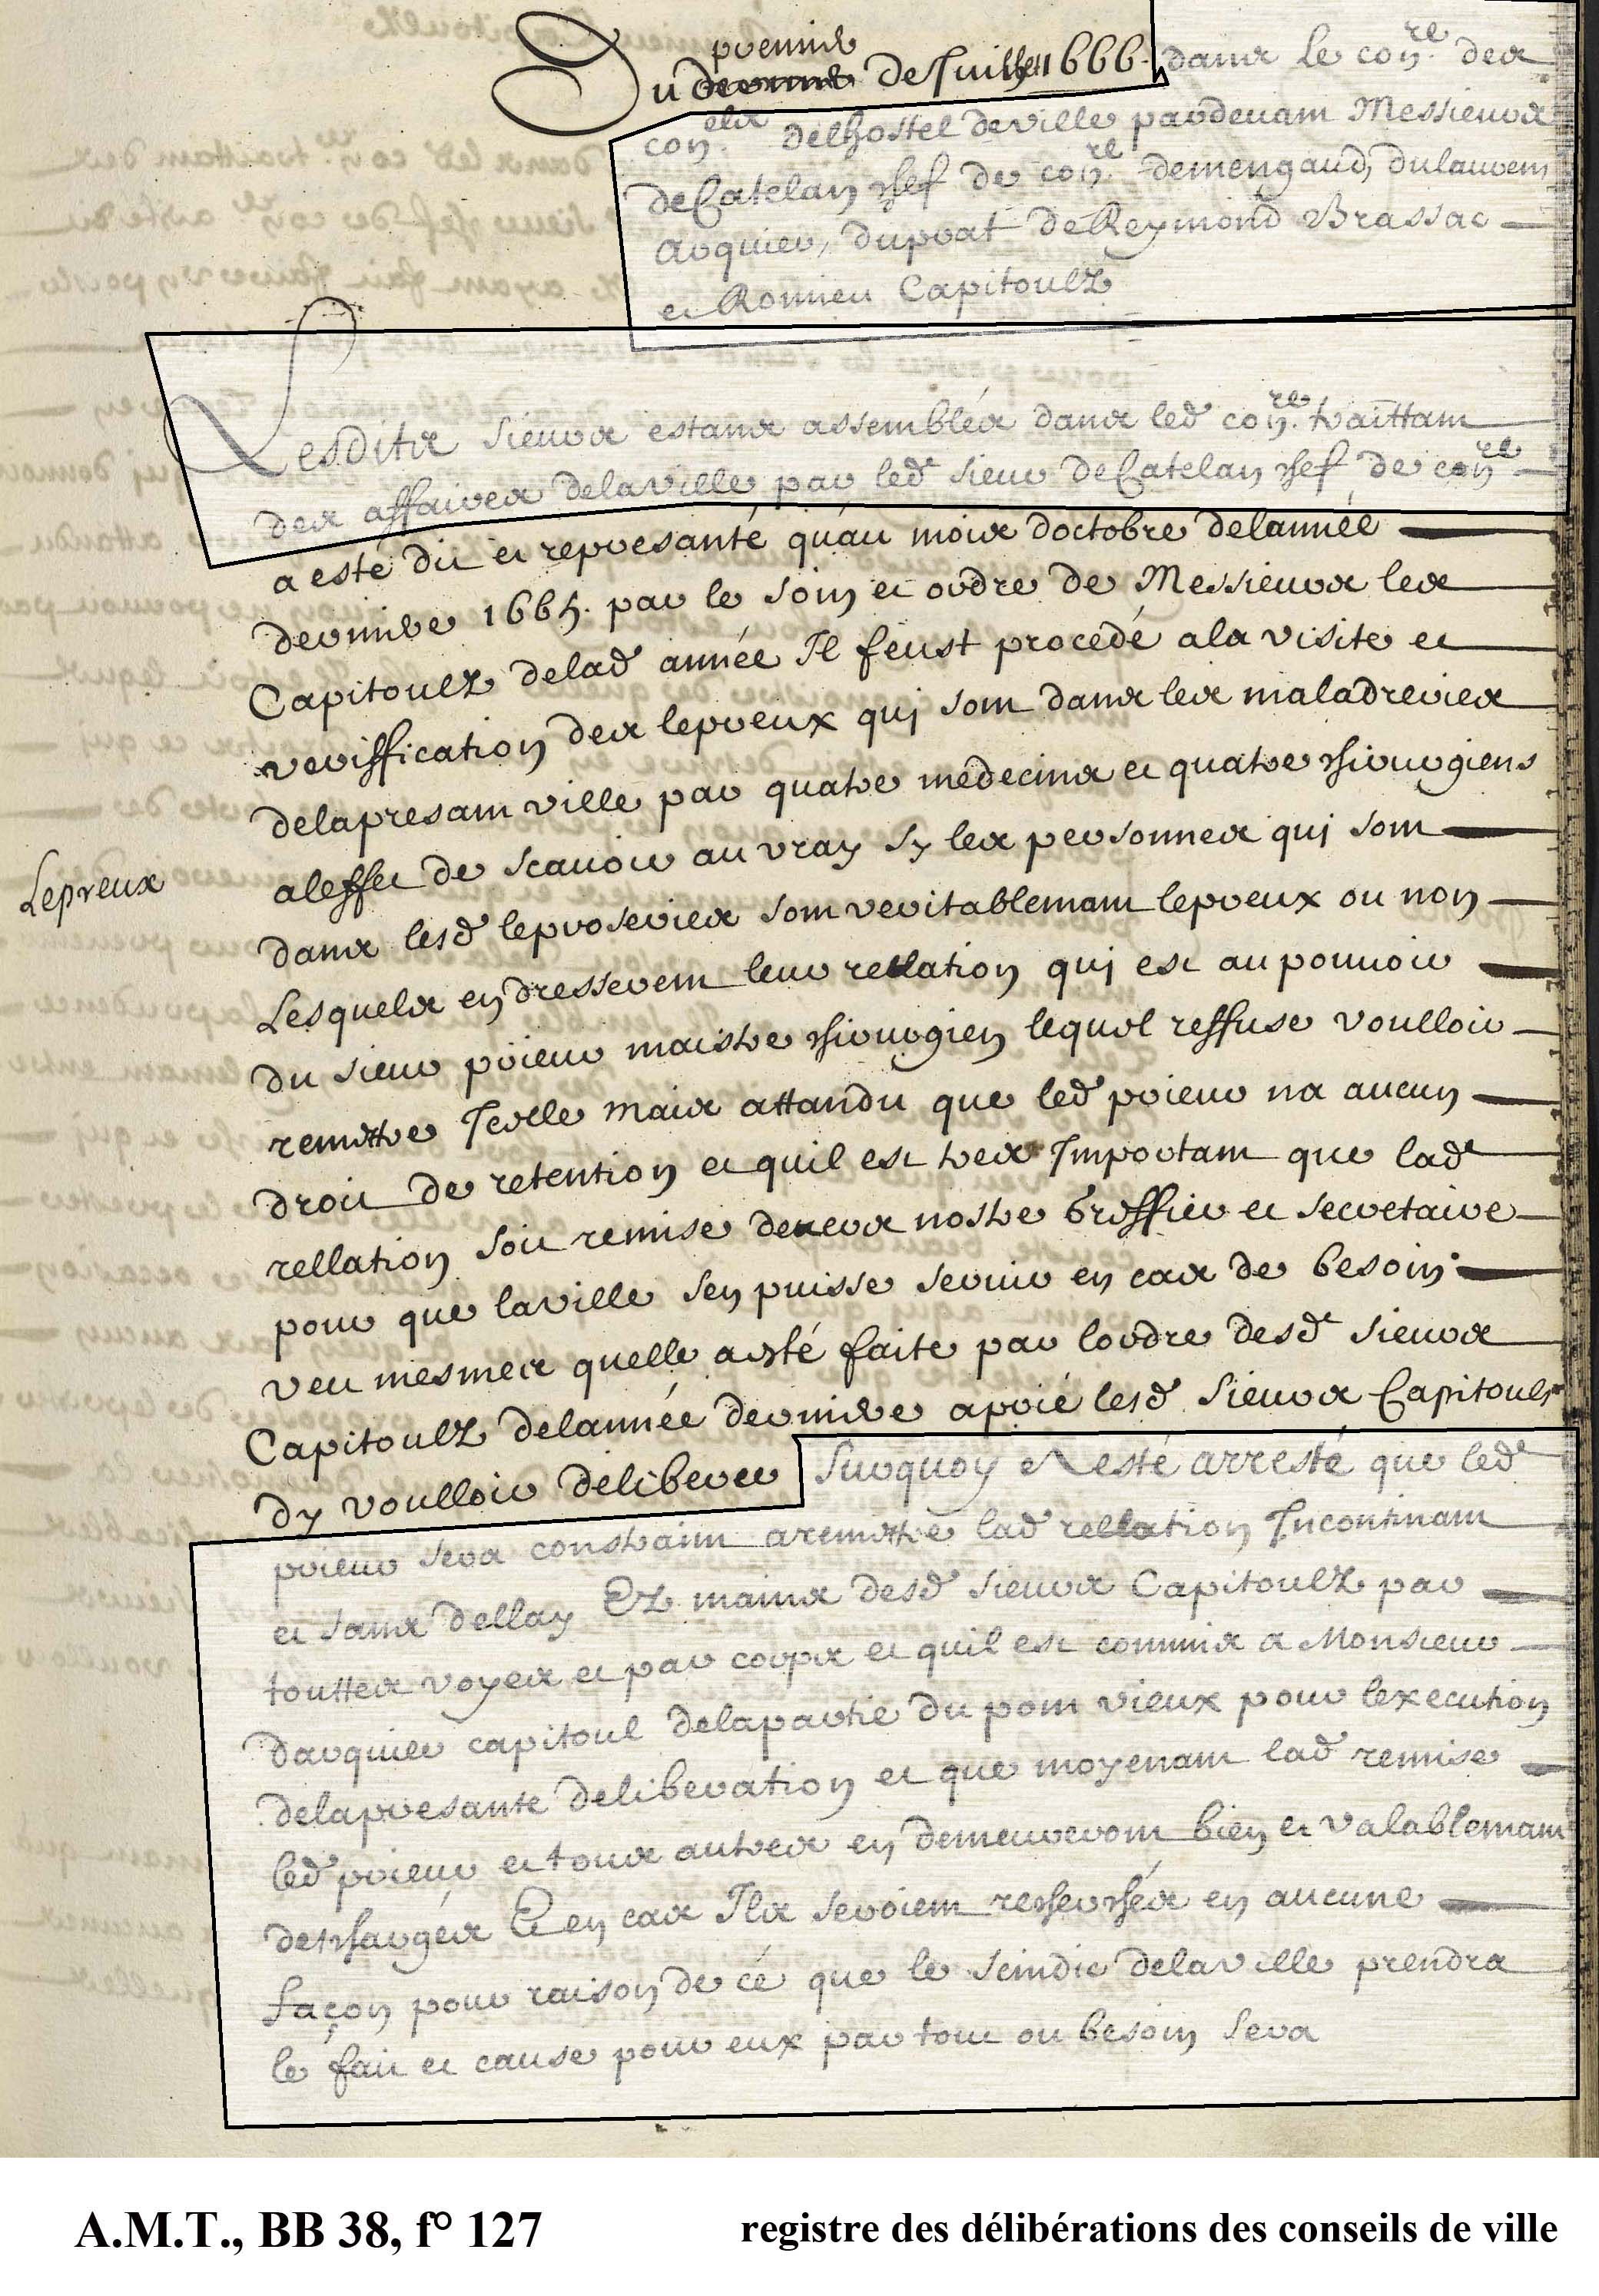 premier
Du dernier de Juillet 1666. dans le con.re des
con.elx delhostel de ville pardevant Messieurs
de Catelan chef de con.re demengaud, dulaurens
arquier, duprat de Reymond Brassac
et Romieu Capitoulz
Lesditz sieurs estans assemblés dans led con.re traittant
des affaires delaville, par led sieur de Catelan chef de con.re
a esté dit et represanté quau mois doctobre delannée
derniere 1665. par le soin et ordre de Messieurs les
Capitoulz delad année Il feust procedé ala visite et
veriffication des lepreux quj sont dans les maladreries
delapresant ville par quatre medecins et quatre chirurgiens
aleffet de scavoir au vray sy les personnes quj sont
Lepreux
dans lesd leproseries sont veritablemant lepreux ou non
Lesquels en dresserent leur rellation quj est au pouvoir
du sieur prieur maistre chirurgien lequel reffuse voulloir
remettre Icelle mais attandu que led prieur na aucun
droit de retention et quil est tres Important que lad
rellation soit remise devers nostre Greffier et secretaire
pour que laville sen puisse servir en cas de besoin
veu mesmes quelle a esté faite par lordre desd sieurs
Capitoulz delannée derniere a prié lesd sieurs Capitouls
dy voulloir deliberer Surquoy a esté arresté que led
prieur sera constraint aremettre lad rellation Incontinant
et sans dellay Ez mains desd sieurs Capitoulz par
touttes voyes et par corps et quil est commis a Monsieur
darquier capitoul delapartie du pont vieux pour lexecution
delapresante deliberation et que moyenant lad remise
led prieur et tous autres en demeureront bien et valablemant
descharges Et en cas Ils seroient recherchés en aucune
façon pour raison de cé que le scindic delaville prendra
le fait et cause pour eux par tout ou besoin sera
A.M.T., BB 38, f° 127 registre des délibérations des conseils de ville